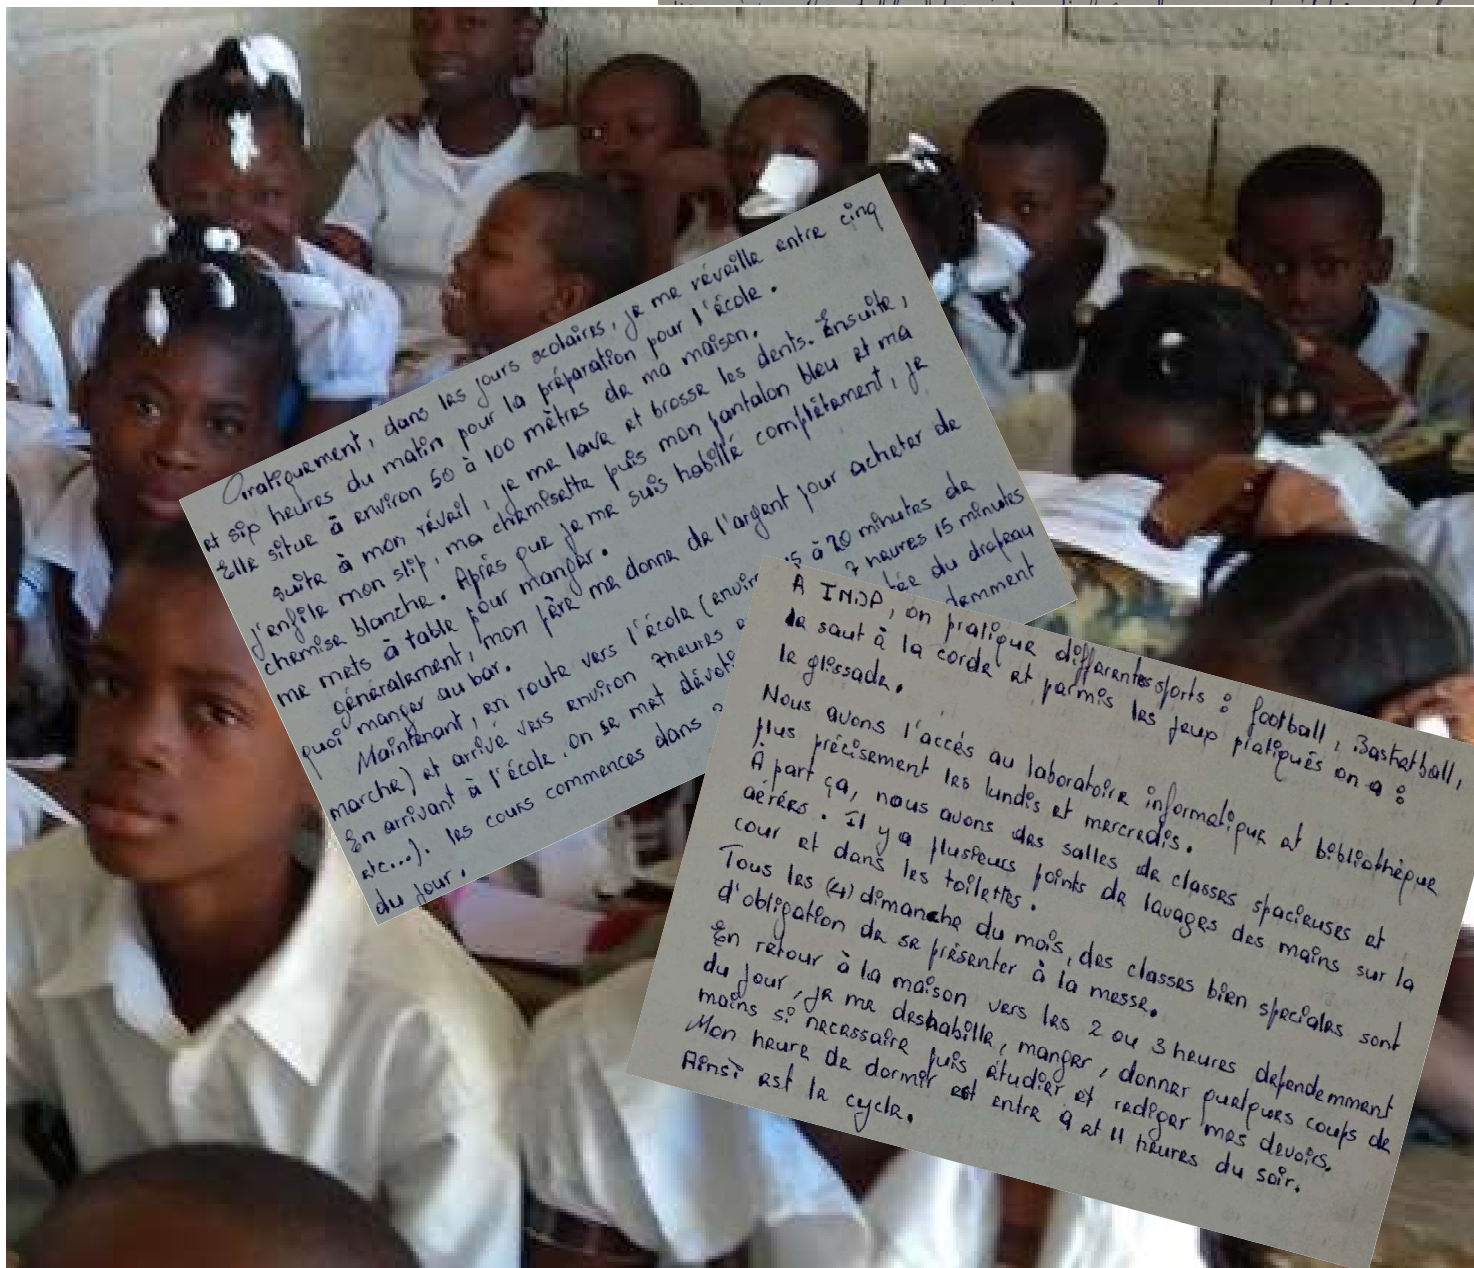 Pratiquement, dans les jours scolaires, je me réveille entre cinq
et sip heures du matin pour la préparation pour l'école.
Elle situe à environ 50 à 100 mètres de ma maison.
suite à mon réveil, je me lave et brosse les dents. Ensuite,
j'enfile mon slip, ma chemisette puis mon pantalon bleu et ma
chemise blanche. Après que je me suis habillé complètement, je
me mets à table pour manger.
généralement, mon père me donne de l'argent pour acheter de
quoi manger au bar.
Maintenant, en route vers l'école (environ à 20 minutes de
marche) et arrivé vers environ 7heures 7 heures 15 minutes
En arrivant à l'école. on se met du drapeau
etc...). les cours commences dans demment
du jour.
A INDP, on pratique differentes sports : football, Basketball,
le saut à la corde et parmis les jeux pratiqués on a :
la glissade.
Nous avons l'accés au laboratoire informatique et bibliothèque
plus précisement les lundis et mercredis.
À part ça, nous avons des salles de classes spacieuses et
aérées. Il y a plusieurs points de lavages des mains sur la
cour et dans les toilettes.
Tous les (4) dimanche du mois, des classes bien speciales sont
d'obligation de se présenter à la messe.
En retour à la maison vers les 2 ou 3 heures dependemment
du jour, je me deshabille, manger, donner quelques coups de
mains si necessaire puis étudier et rediger mes devoirs.
Mon heure de dormir est entre 9 et 11 heures du soir.
Ainsi est le cycle.